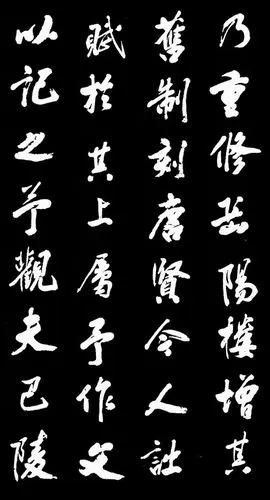 乃重修岳陽樓增其
舊制刻唐賢今人詩
賦於其上屬予作文
以記之予觀夫巴陵